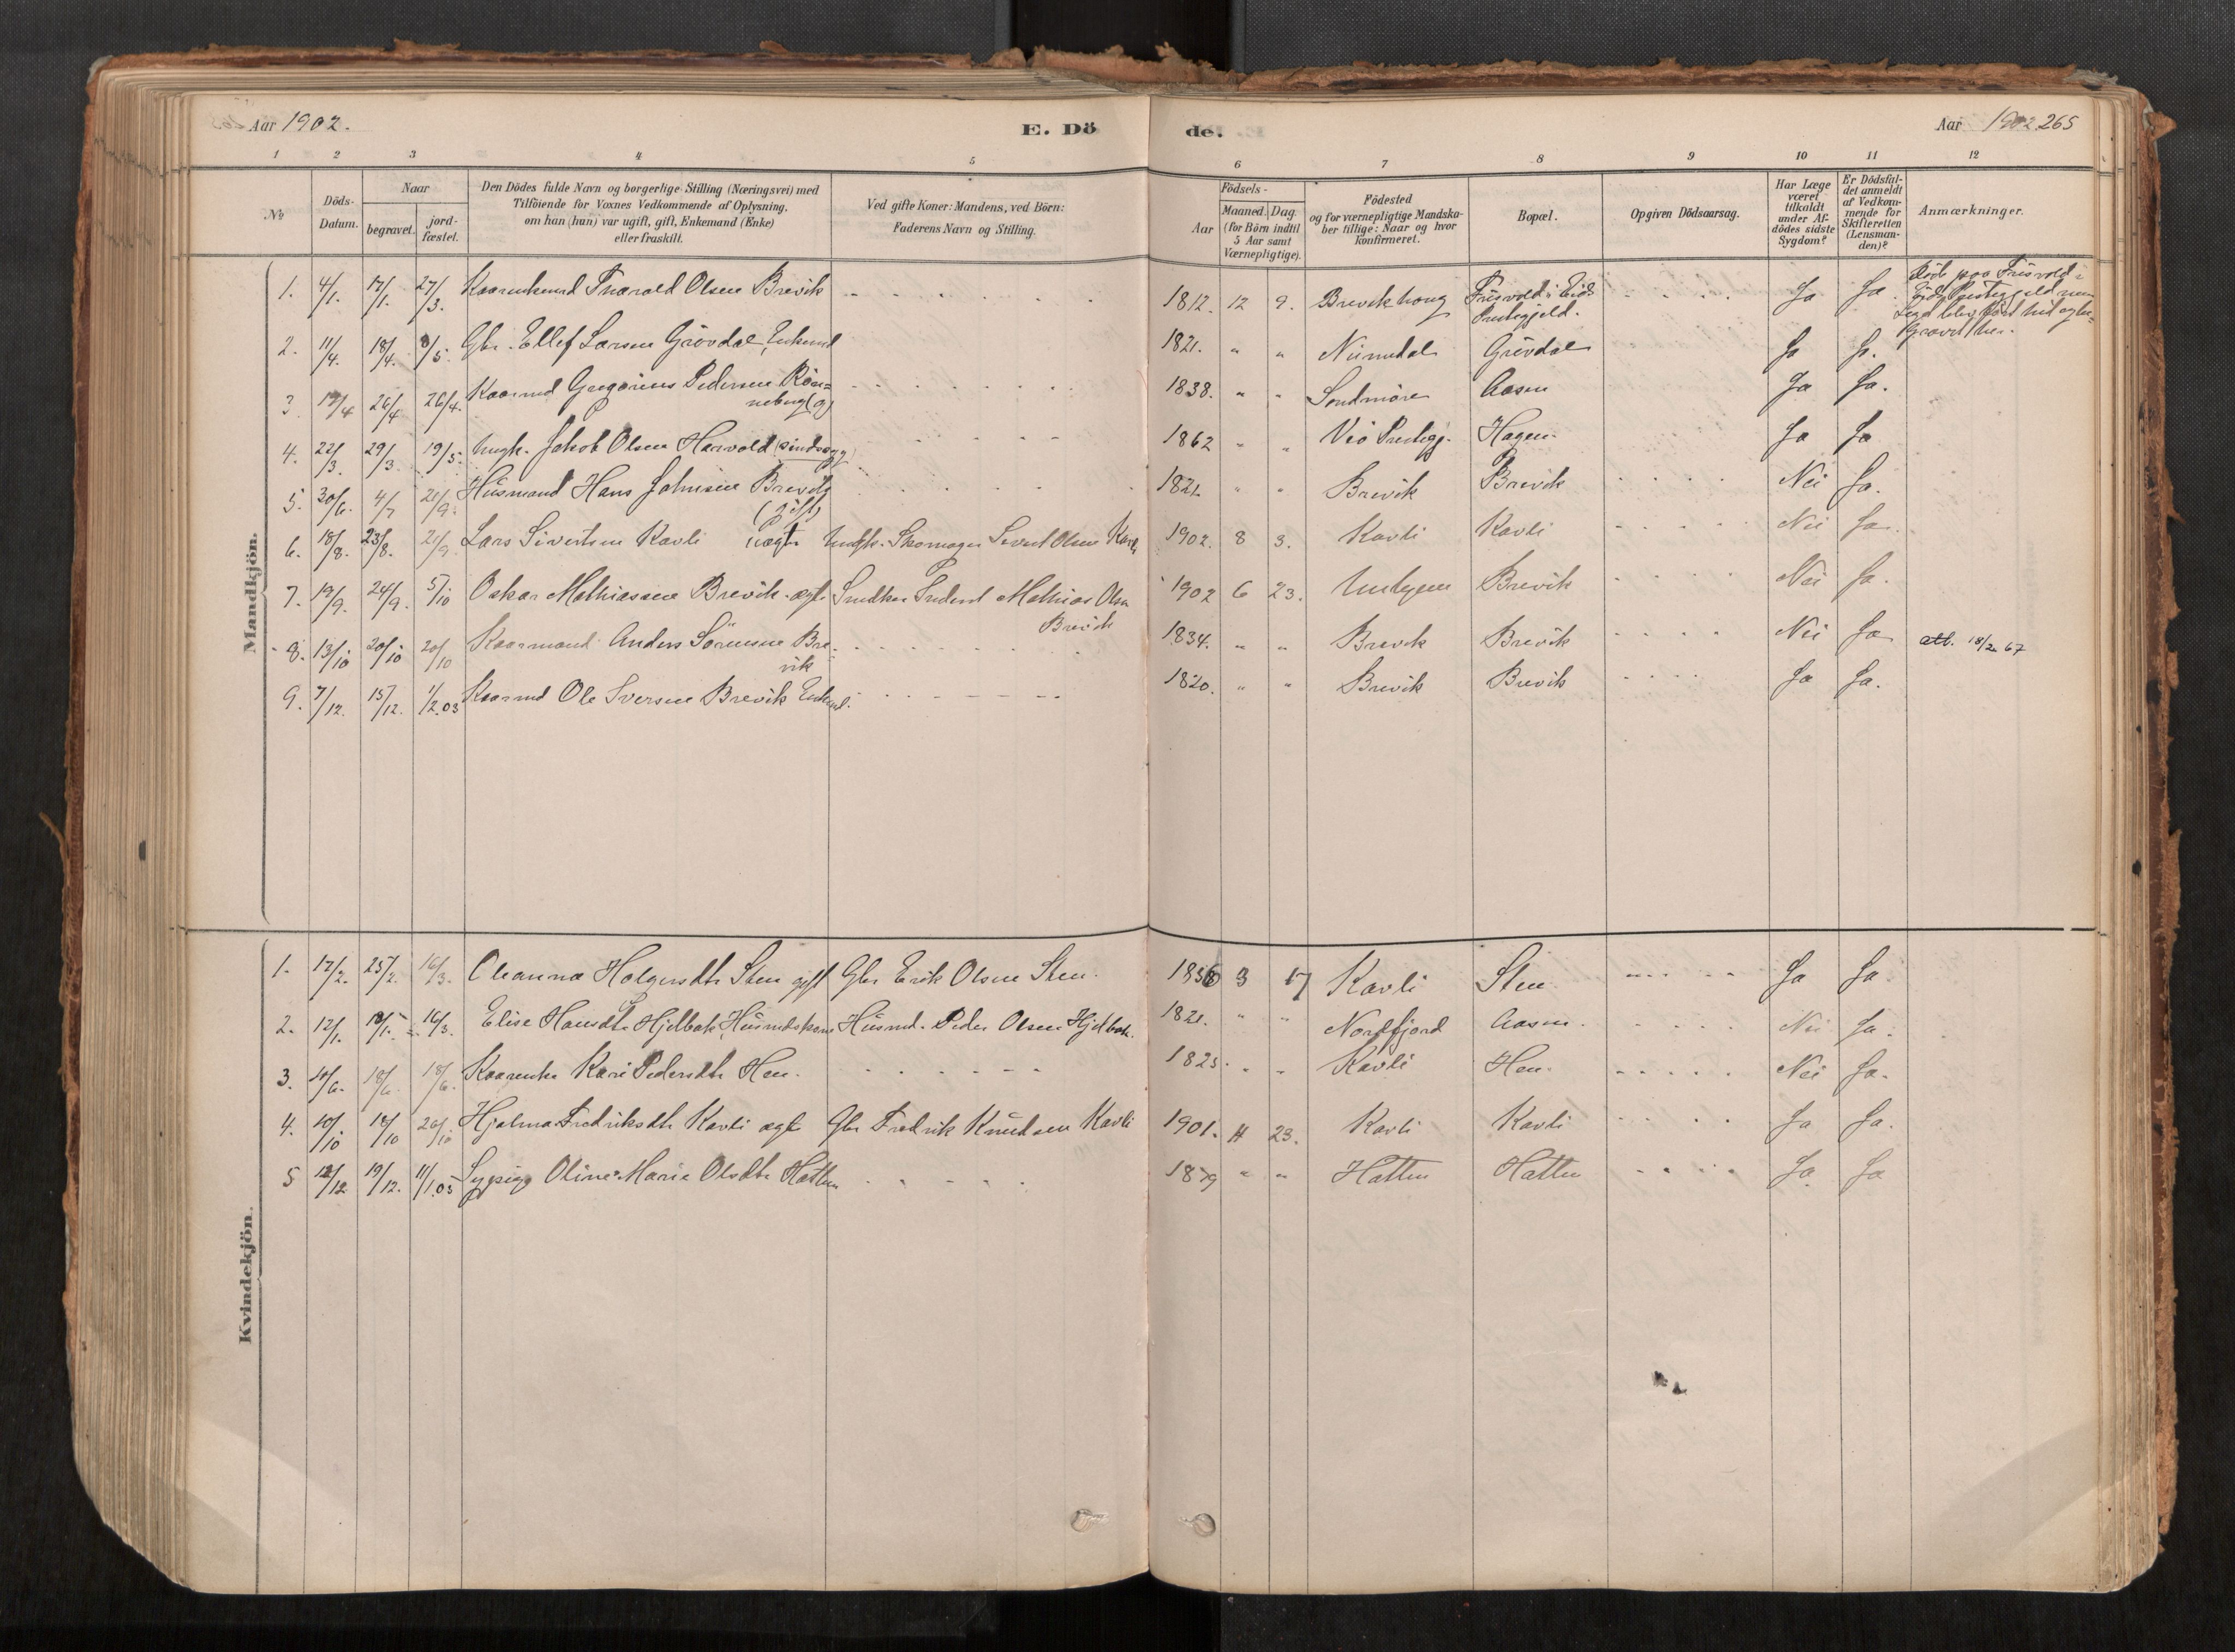 Aar 1902.
E. Dö
de.
Aar 1902. 265
1 2 3 4 5 6 7 8 9 10 11 12
№
Döds-
Datum.
Naar
begravet.
jord-
fæstet.
Den Dödes fulde Navn og borgerlige Stilling (Næringsvei) med
Tilföiende for Voxnes Vedkommende af Oplysning,
om han (hun) var ugift, gift, Enkemand (Enke)
eller fraskilt.
Ved gifte Koner: Mandens, ved Börn:
Faderens Navn og Stilling.
Födsels-
Aar
Maaned. Dag.
(for Börn indtil
5 Aar samt
Værnepligtige).
Födested
og for værnepligtige Mandska-
ber tillige: Naar og hvor
konfirmeret.
Bopæl.
Opgiven Dödsaarsag.
Har Læge
været
tilkaldt
under Af-
dödes sidste
Sygdom?
Er Dödsfal-
det anmeldt
af Vedkom-
mende for
Skifteretten
(Lensman-
den)?
Anmærkninger.
Mandkjön.
1. 4/1. 17/1. 27/3. Olsen Brevik 1812. 12 9. Brevikhoug Frisvold i Eids Prestegjeld. Ja Ja. Död paa Frisvold i
Eids Prestegjeld men
2. 11/4. 18/4. 8/5. Gbr. Ellef Larsen Grövdal, Enkemd 1821. " " Grövdal Ja Ja.
3. 19/4 26/4 26/4. Kaarmd Gregorius Pedersen Rön=
neberg (g) 1838. " " Söndmöre Aasen Ja Ja.
4. 22/3. 29/3. 19/5. Ungk. Jakob Olsen Harvold (sindssyg) 1862 " " Veö Prestegj. Hagen Ja Ja
5. 30/6. 4/7 21/9. Husmand Hans Johnsen Brevik
(gift) 1821. " " Brevik Brevik Nei Ja.
6. 18/8. 23/8. 21/9. Lars Sivertsen Kavli uægte Ungk. Skomager Sivert Olsen Kavli 1902. 8 3. Kavli Kavli Nei Ja.
7. 19/9. 24/9. 5/10 Oskar Mathiassen Brevik. ægte Snedker Mathias Olsen
Brevik 1902 6 23. Brevik Nei Ja.
8. 13/10 20/10 20/10 Kaarmand Anders Sörensen Bre-
vik 1834. " " Brevik Brevik Nei Ja att. 18/2 67
9. 7/12. 15/12. 1/2.03 Kaarmd Ole Iversen Brevik Enkemd. 1820. " " Brevik Brevik Ja Ja.
Kvindekjön.
1. 17/2. 25/2. 16/3. Oleanna Holgersdtr Sten gift Gbr Erik Olsen Sten. 1856 3 17 Kavli Sten Ja Ja.
2. 12/1. 18/1. 16/3. Elise Hansdtr Hjelbak, Husmdskone Husmd. Peder Olsen Hjelbak. 1821. " " Nordfjord Aasen. Nei Ja.
3. 11/6. 18/6. 18/6. Kaarenke Kari Pedersdtr Hen. 1825. " " Kavli Hen. Nei Ja.
4. 10/10 18/10 26/10 Hjalma Fredriksdtr Kavli ægte Gbr Fredrik Knudsen Kavli 1901. 4 23. Kavli Kavli Ja Ja.
5 12/12. 19/12. 11/1.03 Sypige Oline Marie Olsdtr Hatten 1879 " " Hatten Hatten Ja. Ja